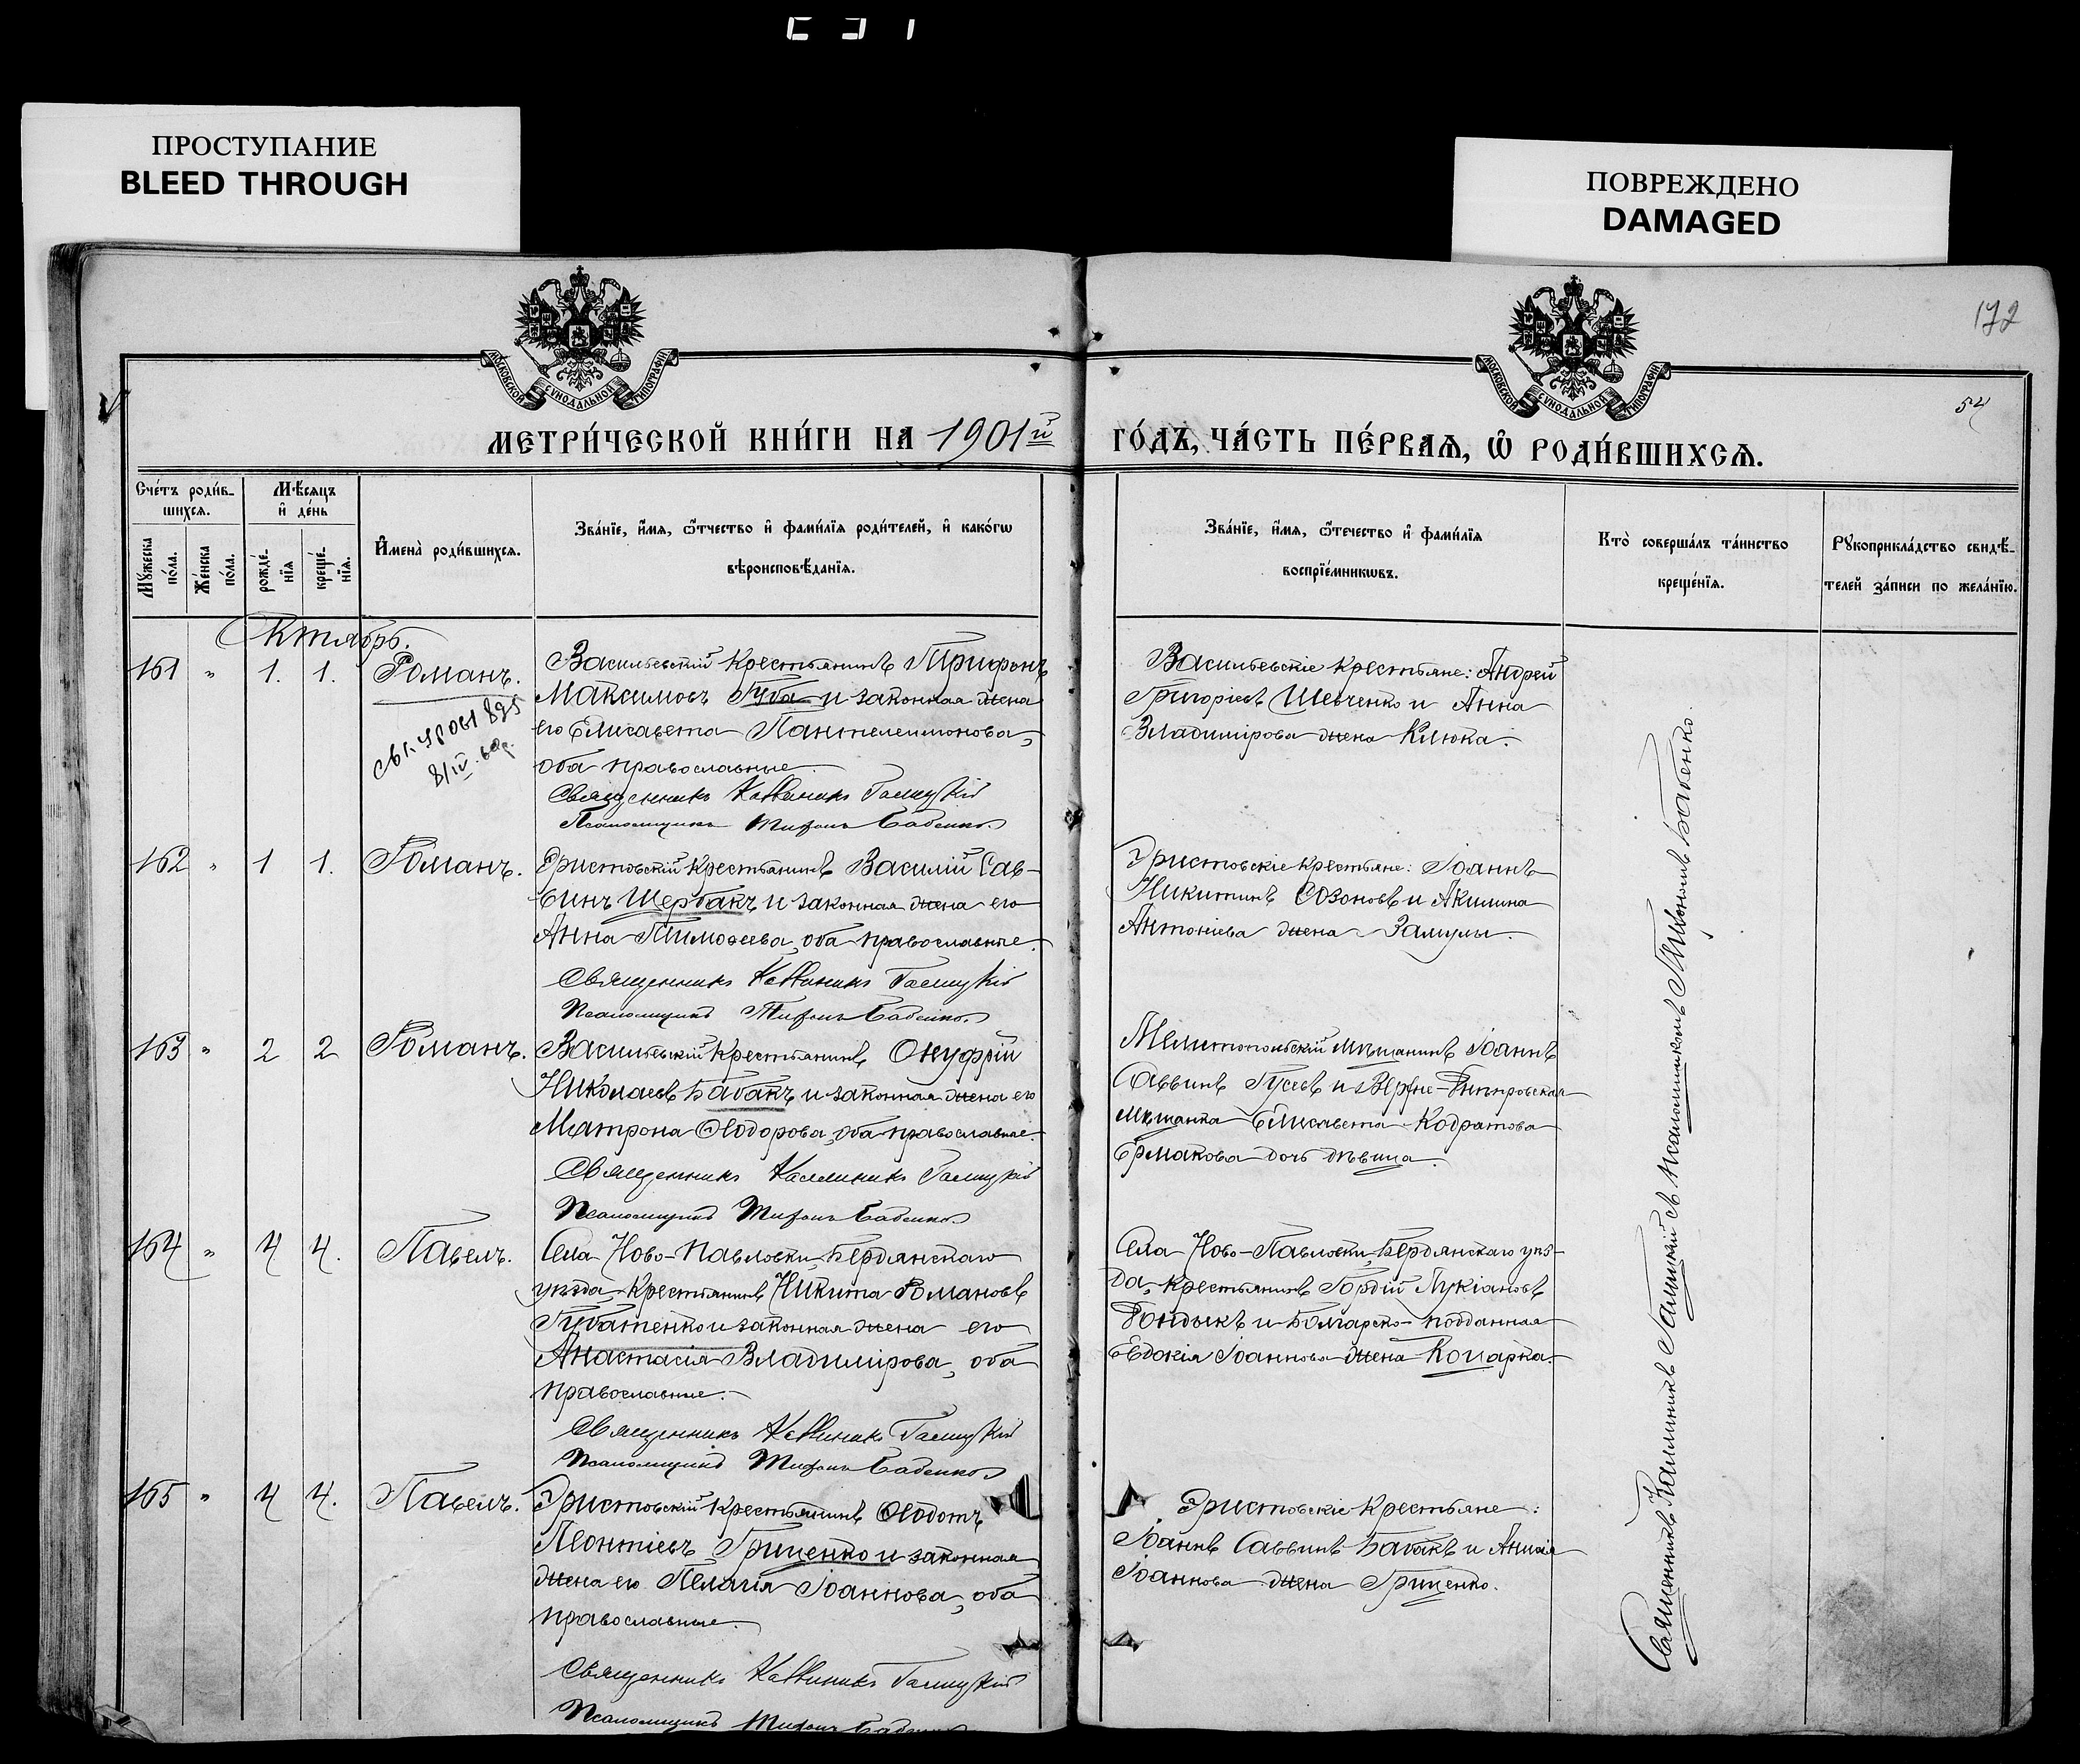 ПРОСТУПАНИЕ
BLEED THROUGH
ПОВРЕЖДЕНО
DAMAGED
172
54
МОСКОВСКОЙ СѴНОДАЛЬНОЙ ТИПОГРАФІИ
МОСКОВСКОЙ СѴНОДАЛЬНОЙ ТИПОГРАФІИ
МЕТРИ́ЧЕСКОЙ КНИ́ГИ НА 1901й ГО́ДЪ, ЧА́СТЬ ПЕ́РВАѦ, Ѡ҆ РОДИ́ВШИХСѦ.
Сче́тъ роди́в-
шихсѧ.
Мѣ́сѧцъ
и҆ де́нь
Мꙋ́жеска по́ла.
Же́нска по́ла.
рожде́-
нїѧ
креще́-
нїѧ.
И҆мена̀ роди́вшихсѧ.
Зва́нїе, и҆́мѧ, ѻ҆́тчество и҆ фами́лїѧ роди́телей, и҆ како́гѡ
вѣроисповѣ́данїѧ.
Зва́нїе, и҆́мѧ, ѻ҆те́чество и҆ фами́лїѧ
воспрїе́мникѡвъ.
Кто̀ соверша́лъ та́инство
креще́нїѧ.
Рꙋкоприкла́дство свидѣ́-
телей за́писи по жела́нїю.
Октябрь.
161 " 1. 1. Романъ.
Васильевскій крестьянинъ Трифонъ
Максимовъ Губа и законная жена
его Елисавета Пантелеимонова,
оба православные.
Священникъ Каллиникъ Галицкій
Псаломщикъ Тифонъ Бабенко.
Васильевскіе крестьяне: Андрей
Григоріевъ Шевченко и Анна
Владимірова жена Клюка.
162 " 1 1. Романъ.
Эристовскій крестьянинъ Василій Сав-
винъ Щербакъ и законная жена его
Анна Тимоѳеева, оба православные.
Священникъ Каллиникъ Галицкій
Псаломщикъ Тифонъ Бабенко.
Эристовскіе крестьяне: Іоаннъ
Никитинъ Созоновъ и Акилина
Антоніева жена Замулы.
163 " 2 2 Романъ.
Васильевскій крестьянинъ Онуфрій
Николаевъ Бабакъ и законная жена его
Матрона Ѳеодорова, оба православные.
Священникъ Каллиникъ Галицкій
Псаломщикъ Тифонъ Бабенко
Мелитопольскій мѣщанинъ Іоаннъ
Саввинъ Гусевъ и Верхне-Днѣпровская
мѣщанка Елисавета Кодратова
Ермакова дочь дѣвица.
164 " 4 4. Павелъ.
Села Ново-Павловки, Бердянскаго
уѣзда, крестьянинъ Никита Романовъ
Губатенко и законная жена его
Анастасія Владимірова, оба
православные.
Священникъ Каллиникъ Галицкій
Псаломщикъ Тифонъ Бабенко
Села Ново-Павловки, Бердянскаго уѣз-
да, крестьянинъ Гордій Лукіановъ
Гондыкъ и Болгарско-подданная
Евдокія Іоаннова жена Коцарка.
165 " 4 4. Павелъ.
Эристовскій крестьянинъ Ѳеодотъ
Леонтіевъ Гриценко и законная
жена его Пелагія Іоаннова, оба
православные.
Священникъ Каллиникъ Галицкій
Псаломщикъ Тифонъ Бабенко
Эристовскіе крестьяне:
Іоаннъ Саввинъ Бабакъ и Анисія
Іоаннова жена Гриценко.
Священникъ Каллиникъ Галицкій съ псаломщикомъ Тифономъ Бабенко.